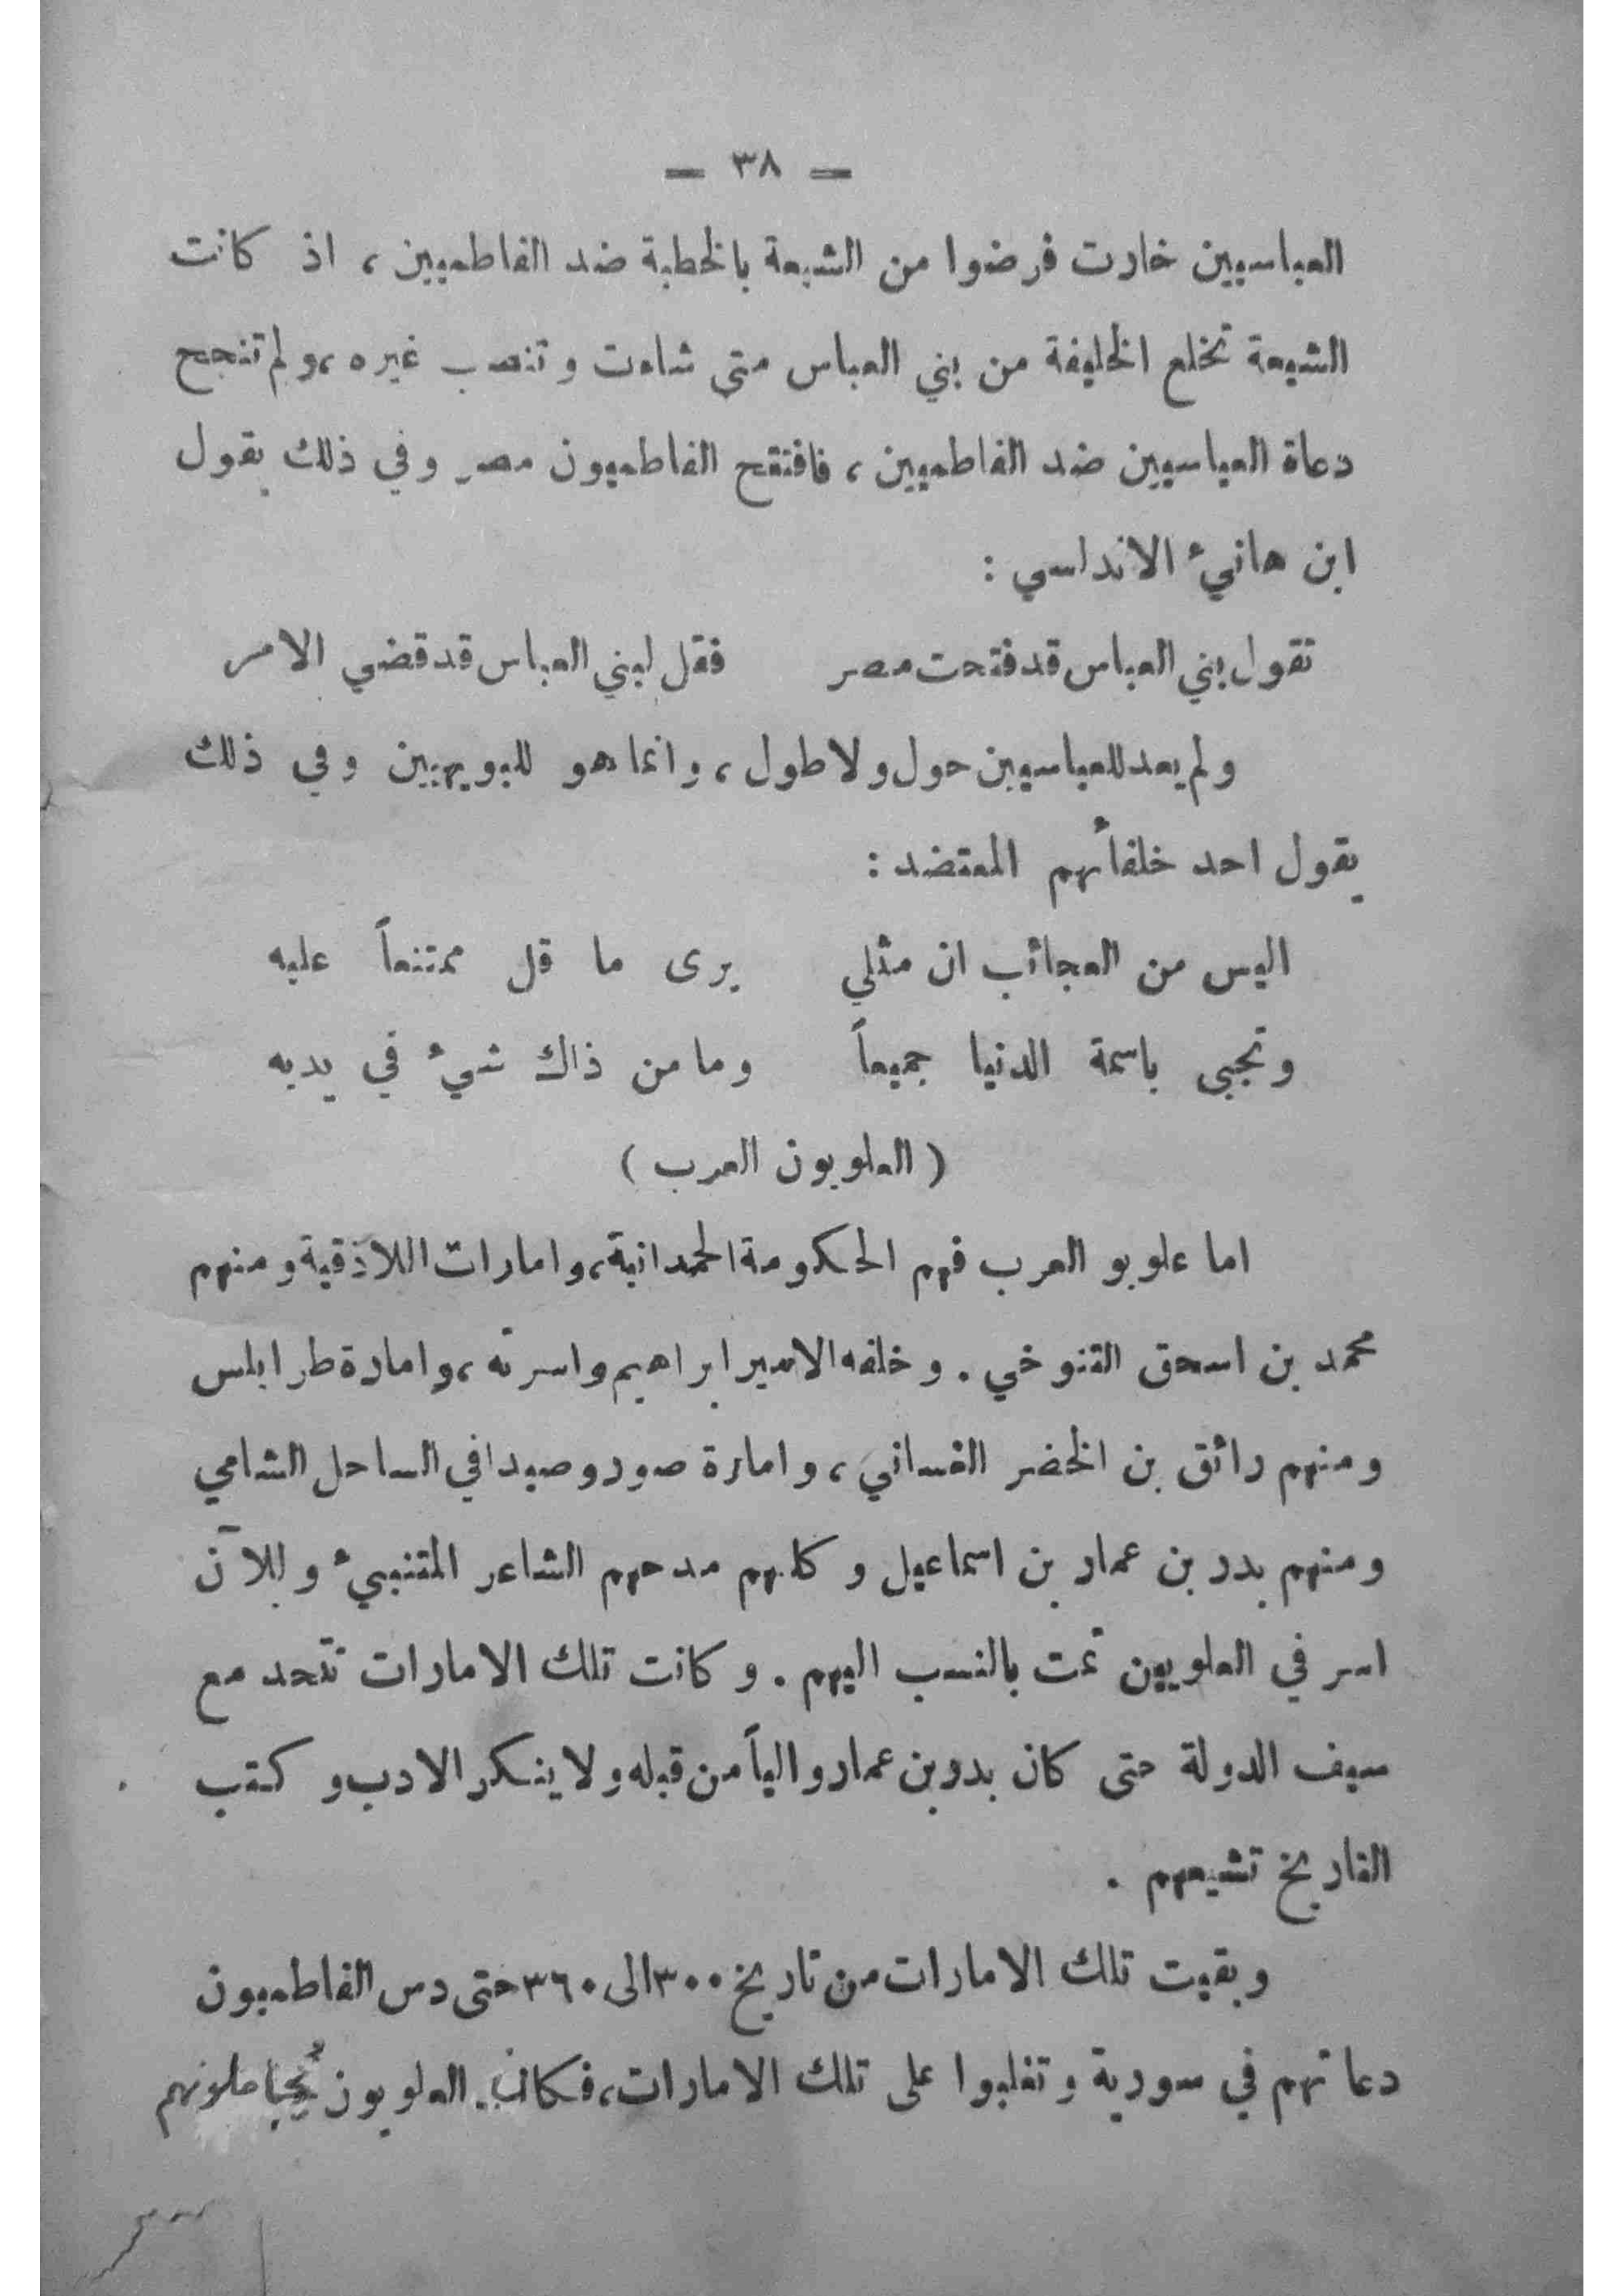 — ٣٨ —
العباسيين خارت فرضوا من الشيعة بالخطبة ضد الفاطميين ، اذ كانت
الشيعة تخلع الخليفة من بني العباس متى شاءت وتنصب غيره ، ولم تنجح
دعاة العباسيين ضد الفاطميين ، فافتتح الفاطميون مصر وفي ذلك يقول
ابن هانيء الاندلسي :
تقول بني العباس قد فتحت مصر فقل لبني العباس قد قضي الامر
ولم يعد للعباسيين حول ولا طول ، وانما هو للبويهيين وفي ذلك
يقول احد خلفائهم المعتضد :
اليس من العجائب ان مثلي يرى ما قل ممتنعاً عليه
وتجبى باسمة الدنيا جميعاً وما من ذاك شيء في يديه
( العلويون العرب )
اما علويو العرب فهم الحكومة الحمدانية ، وامارات اللاذقية ومنهم
محمد بن اسحق التنوخي . وخلفه الامير ابراهيم واسرته ، وامارة طرابلس
ومنهم رائق بن الخضر الغساني ، وامارة صور وصيدا في الساحل الشامي
ومنهم بدر بن عمار بن اسماعيل وكلهم مدحهم الشاعر المتنبيء وللآن
اسر في العلويين تمت بالنسب اليهم . وكانت تلك الامارات تتحد مع
سيف الدولة حتى كان بدر بن عمار والياً من قبله ولا ينكر الادب وكتب
التاريخ تشيعهم .
وبقيت تلك الامارات من تاريخ ٣٠٠ الى ٣٦٠ حتى دس الفاطميون
دعاتهم في سورية وتغلبوا على تلك الامارات ، فكان العلويون